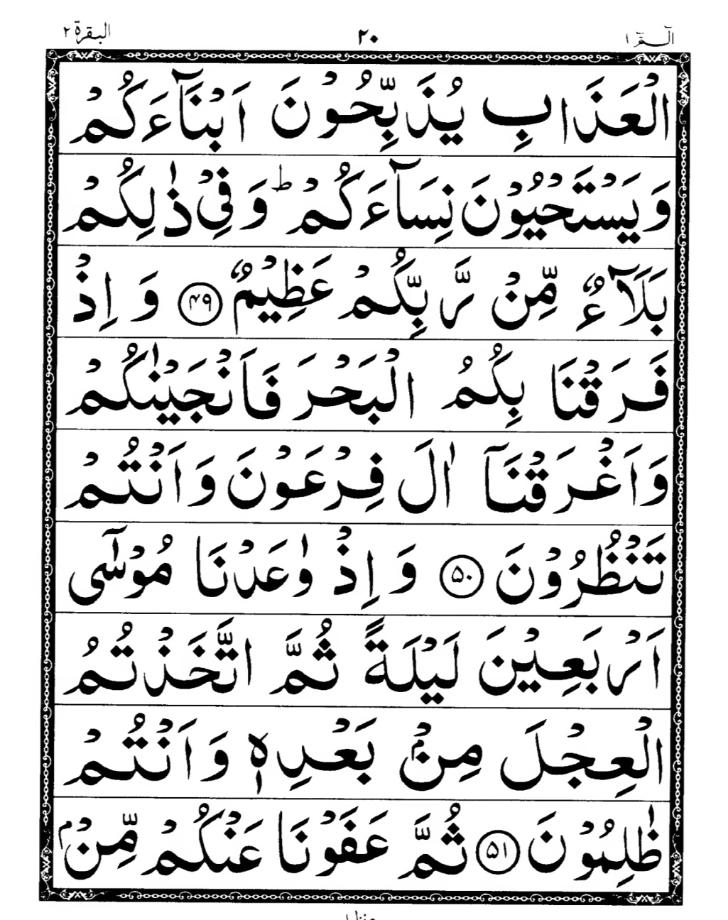 الٓـمّٓ ١ ٢٠ البقرة ٢
الْعَذَابِ يُذَبِّحُوْنَ اَبْنَآءَكُمْ
وَيَسْتَحْيُوْنَ نِسَآءَكُمْ ؕ وَفِيْ ذٰلِكُمْ
بَلَآءٌ مِّنْ رَّبِّكُمْ عَظِيْمٌ ﴿۴۹﴾ وَ اِذْ
فَرَقْنَا بِكُمُ الْبَحْرَ فَاَنْجَيْنٰكُمْ
وَاَغْرَقْنَآ اٰلَ فِرْعَوْنَ وَاَنْتُمْ
تَنْظُرُوْنَ ﴿۵۰﴾ وَ اِذْ وٰعَدْنَا مُوْسٰٓى
اَرْبَعِيْنَ لَيْلَةً ثُمَّ اتَّخَذْتُمُ
الْعِجْلَ مِنْۢ بَعْدِهٖ وَاَنْتُمْ
ظٰلِمُوْنَ ﴿۵۱﴾ ثُمَّ عَفَوْنَا عَنْكُمْ مِّنْۢ